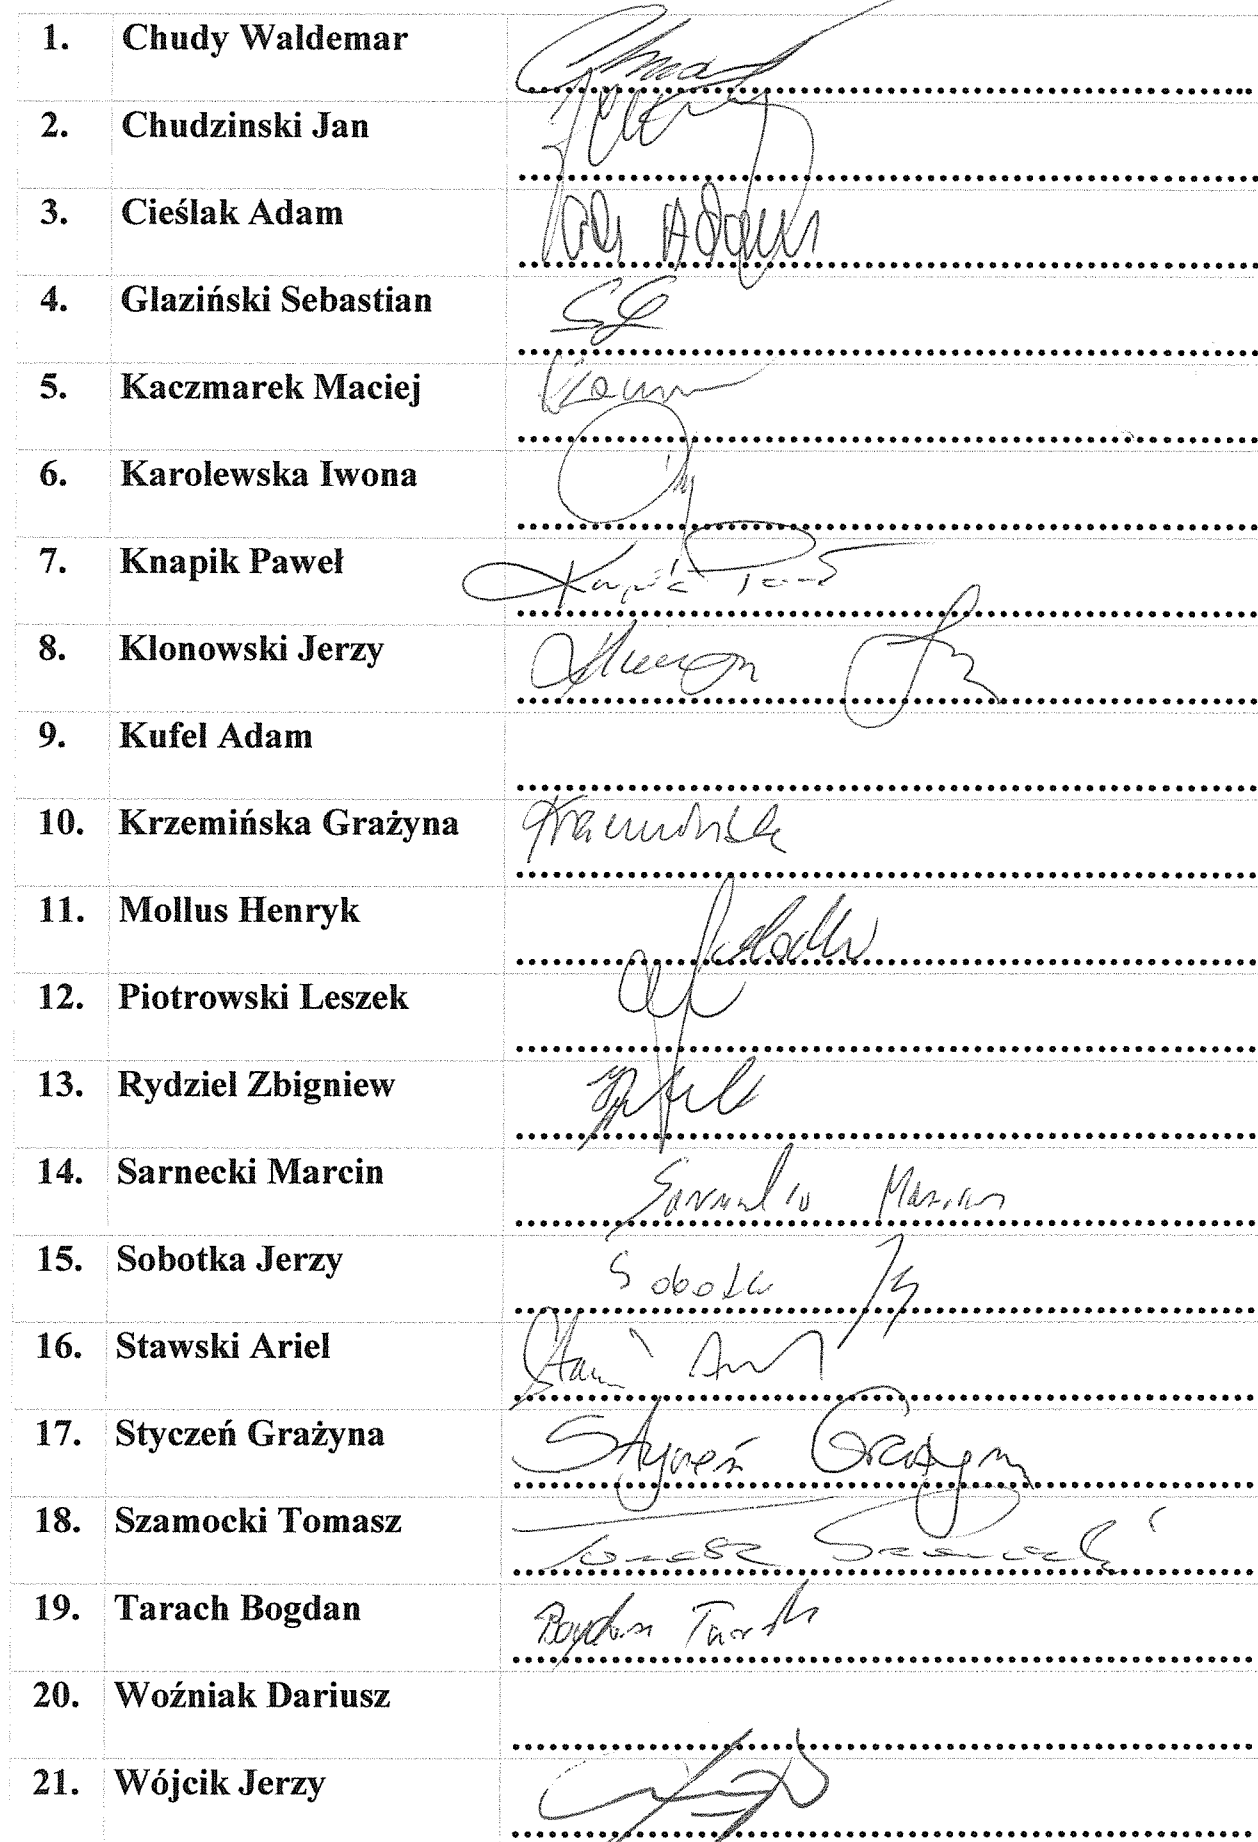 1. Chudy Waldemar
2. Chudzinski Jan
3. Cieślak Adam
4. Glaziński Sebastian SG
5. Kaczmarek Maciej
6. Karolewska Iwona
7. Knapik Paweł
8. Klonowski Jerzy
9. Kufel Adam
10. Krzemińska Grażyna
11. Mollus Henryk
12. Piotrowski Leszek
13. Rydziel Zbigniew
14. Sarnecki Marcin
15. Sobotka Jerzy Sobotka
16. Stawski Ariel
17. Styczeń Grażyna Styczeń Grażyna
18. Szamocki Tomasz Tomasz Szamocki
19. Tarach Bogdan Bogdan Tarach
20. Woźniak Dariusz
21. Wójcik Jerzy